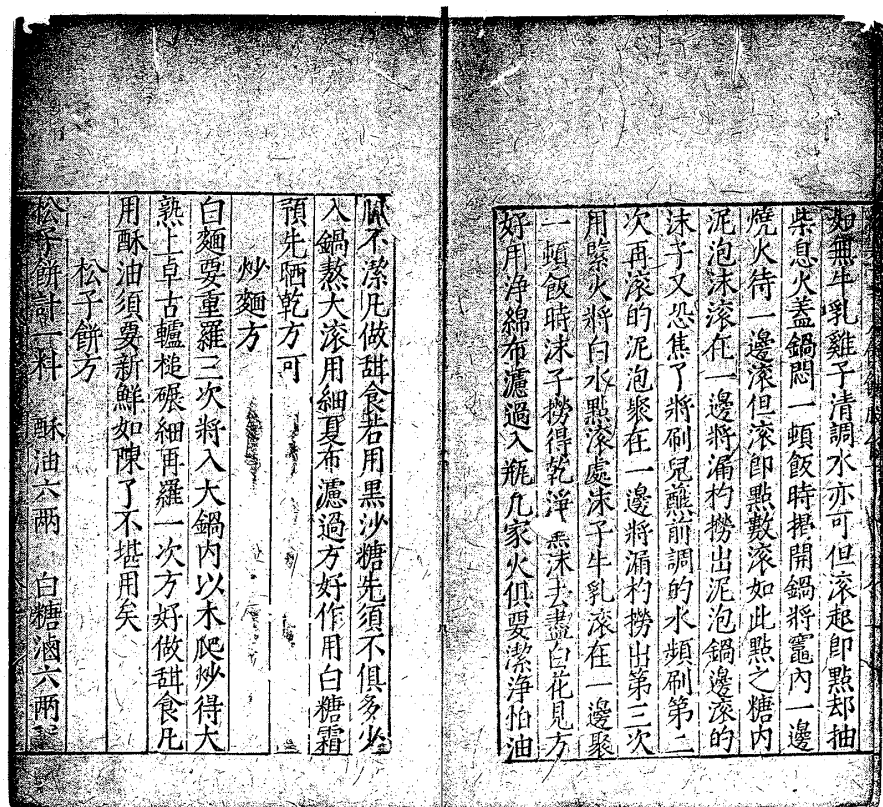 如無牛乳雞子清調水亦可但滚起即點却抽
柴息火蓋鍋悶一頓飯時揭開鍋將竈內一邊
燒火待一邊滚但滚即點數滚如此點之糖內
泥泡沫滚在一邊將漏杓撈出泥泡鍋邊滚的
沫子又恐焦了將刷兒蘸前調的水頻刷第二
次再滚的泥泡聚在一邊將漏杓撈出第三次
用緊火將白水點滚處沫子牛乳滚在一邊聚
一頓飯時沫子撈得乾淨黑沫去盡白花見方
好用淨綿布濾過入瓶凢家火俱要潔淨怕油
膩不潔凢做甜食若用黑沙糖先須不俱多少
入鍋熬大滚用細夏布濾過方好作用白糖霜
預先晒乾方可
炒麵方
白麵要重羅三次將入大鍋內以木爬炒得大
熟上卓古轤槌碾細再羅一次方好做甜食凢
用酥油須要新鮮如陳了不堪用矣
松子餅方
松子餅計一料 酥油六兩 白糖滷六兩